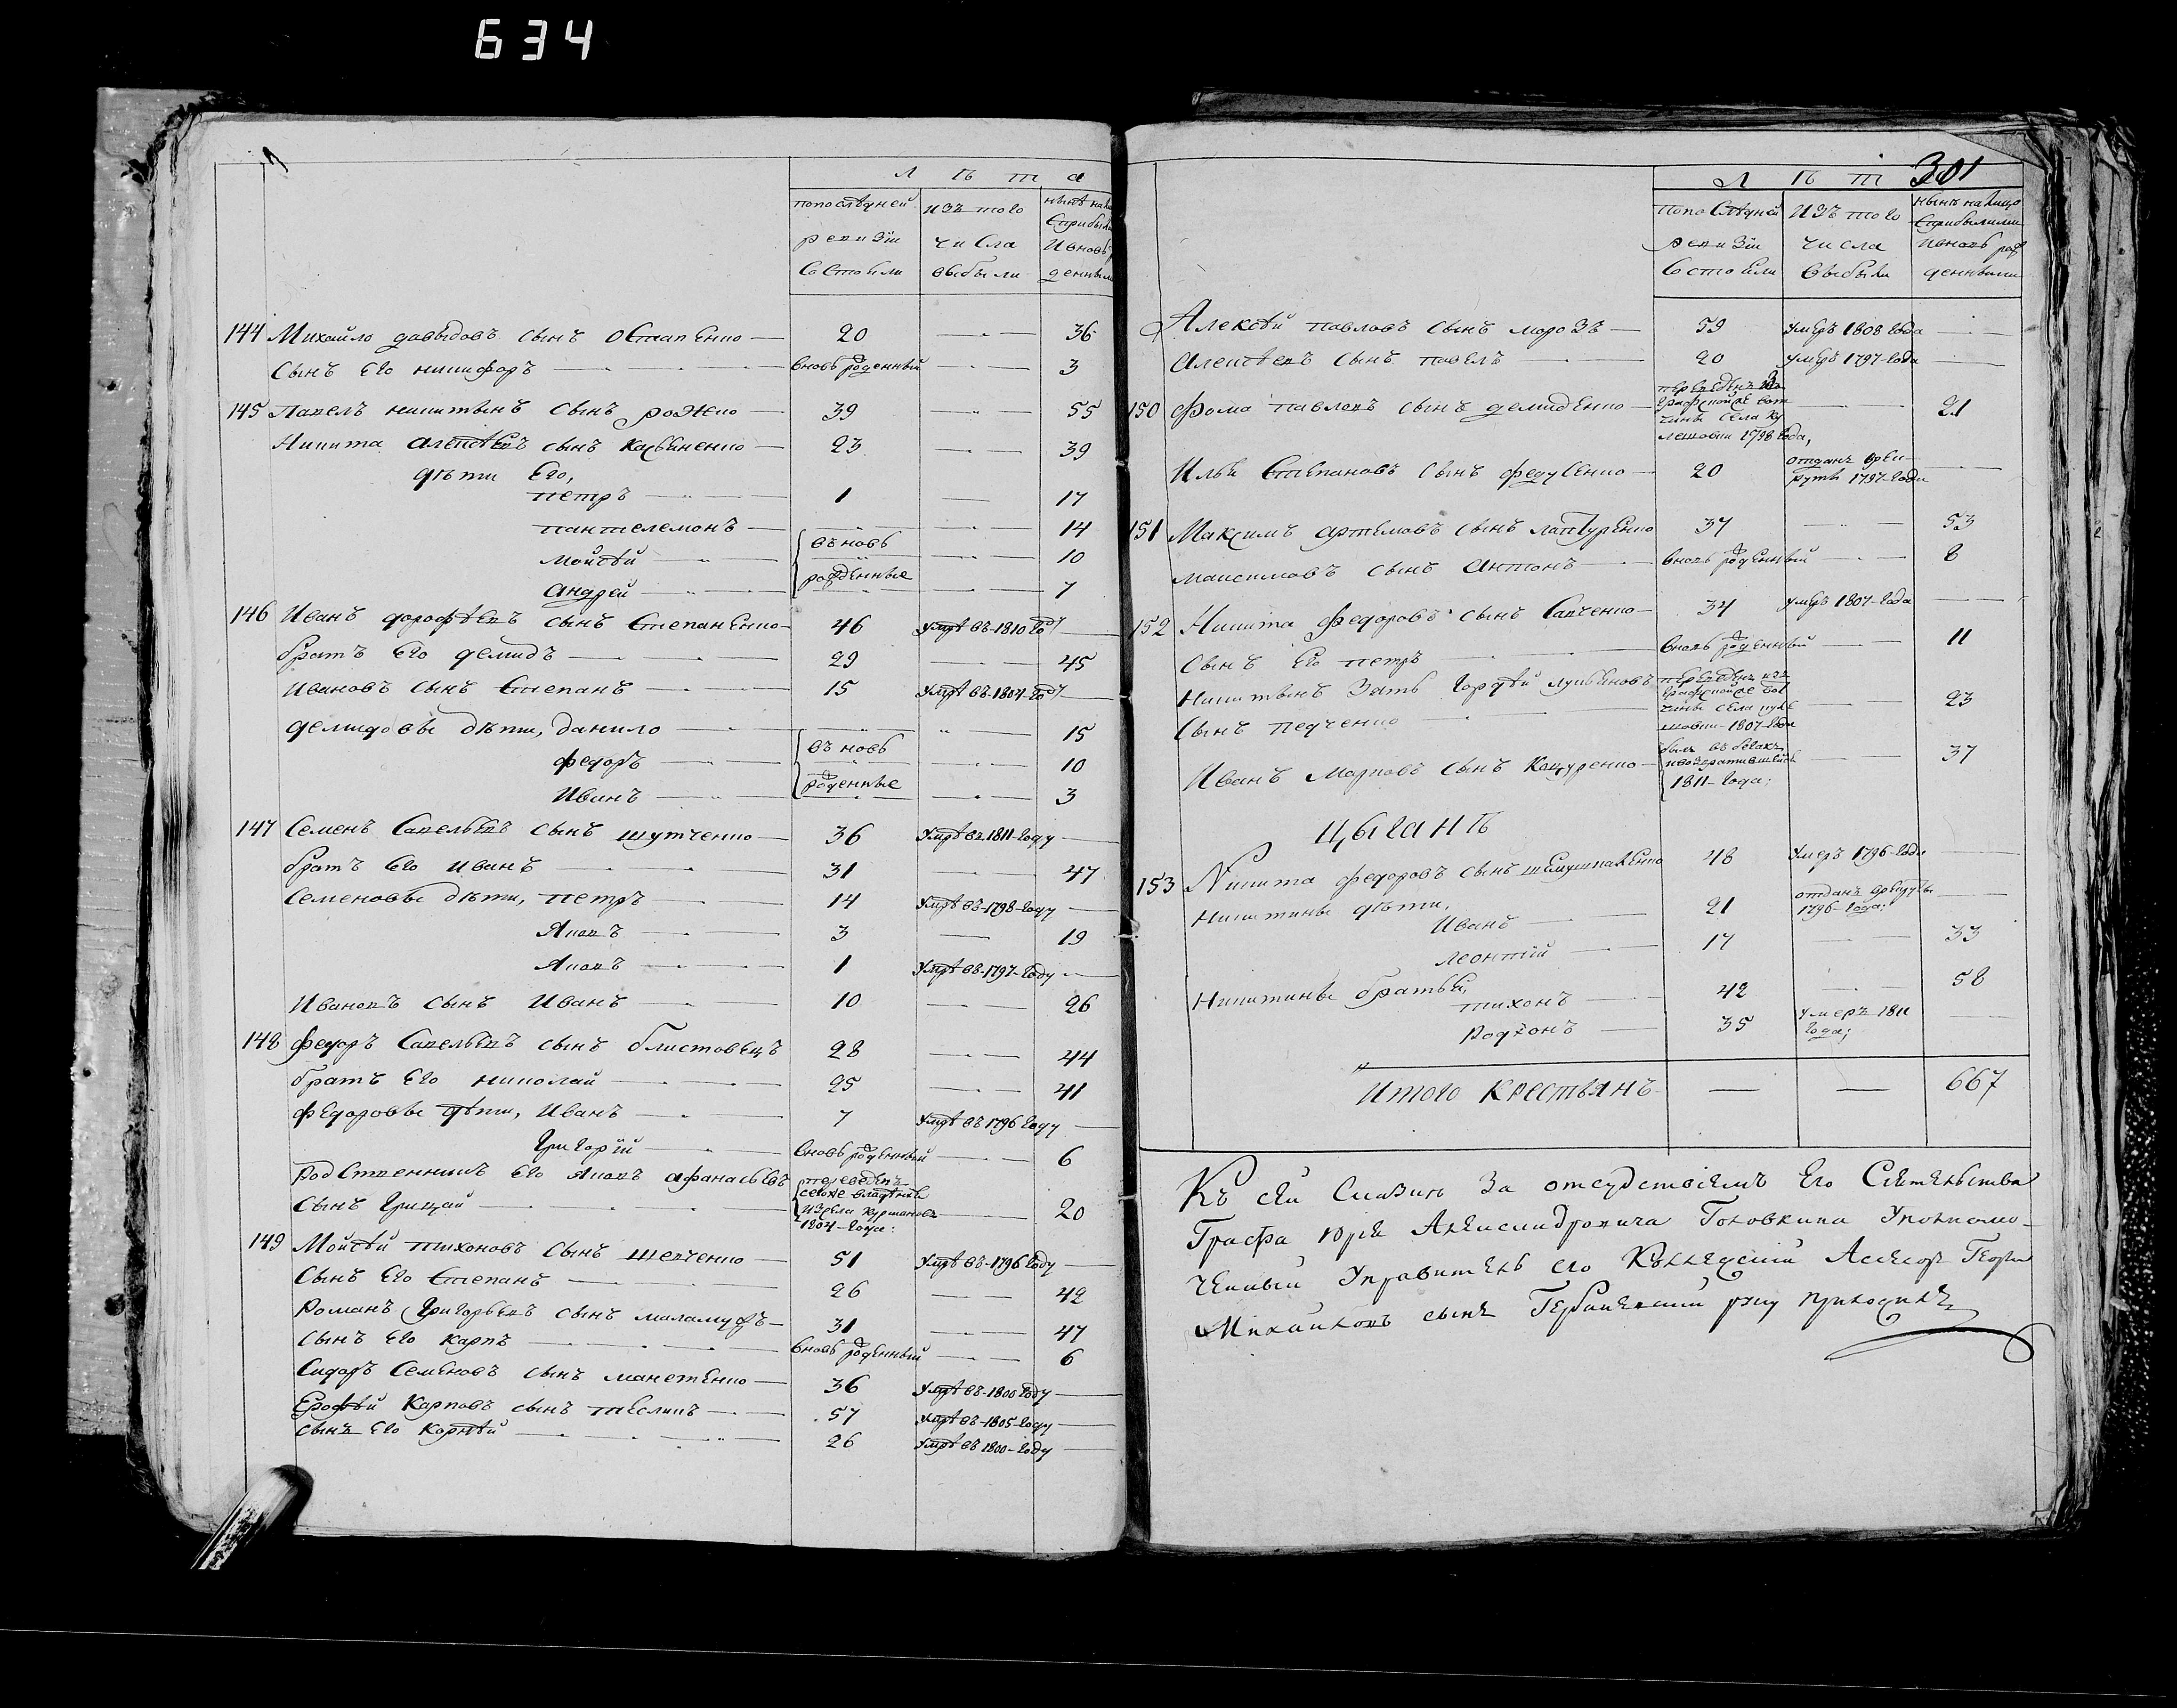 634
Л ѣ т а
по последней ревизіи состояли
изъ того числа выбыли
144 Михайло давыдовъ сынъ Остапенко — 20 — 36
Сынъ его никифоръ — вновь рожденный — 3
145 Павелъ никитинъ сынъ рожко — 39 — 55
Никита алексѣевъ сынъ касьяненко — 23 — 39
дѣти его,
петръ — 1 — 17
пантелемонъ — 14
мойсѣй — въновь — 10
андрей — рожденные — 7
146 Иванъ дорофѣевъ сынъ Степаненко — 46 умре въ 1810 году —
братъ его демидъ — 29 — 45
Ивановъ сынъ Степанъ — 15 умре въ 1804 году —
демидовы дѣти, данило — 15
федоръ — въ новь — 10
Иванъ — рожденные — 3
147 Семенъ Савельевъ сынъ шутченко — 36 умре въ 1811 году —
братъ его иванъ — 31 — 47
Семеновы дѣти, петръ — 14 умре въ 1798 году —
Яковъ — 3 — 19
Яковъ — 1 умре въ 1797 году —
Ивановъ сынъ Иванъ — 10 — 26
148 федоръ Савельевъ сынъ блистовецъ 28 — 44
братъ его николай — 25 — 41
федоровы дѣти, Иванъ — 7 умре въ 1796 году —
григорій — вновь рожденный — 6
Родственникъ его Яковъ афанасьевъ переведенъ
Сынъ грицай — 20
1804 года:
149 Мойсѣй тихоновъ сынъ шевченко — 51 умре въ 1796 году —
Сынъ его Степанъ — 26 — 42
Романъ григорьевъ сынъ маламужъ — 31 — 47
Сынъ его карпъ — вновь рожденный — 6
Сидоръ Семеновъ сынъ манетенко — 36 умре въ 1800 году —
Ерофѣй Карповъ сынъ тесликъ — 57 умре въ 1805 году —
сынъ его корнѣй — 26 умре въ 1800 году —
301
Л ѣ т
по последней ревизіи состояли
изъ того числа выбыли
нынѣ на лицо
Алексѣй павловъ сынъ морозъ — 59 умеръ 1808 года —
алексѣевъ сынъ павелъ — 20 умеръ 1797 года —
150 фома павловъ сынъ демиденко — 21
1798 года,
Илья Степановъ сынъ федусенко — 20 отданъ в рекруты 1797 года —
151 Максимъ артемовъ сынъ лаптуренко 37 — 53
максимовъ сынъ антонъ — вновь рожденный — 8
152 Никита федоровъ сынъ Савченко — 34 умеръ 1807 года —
Сынъ его петръ — вновь рожденный — 11
Никитинъ зять гордѣй лукьяновъ
Сынъ педченко — 23
1807 года
Иванъ марковъ сынъ Кацуренко — былъ въ бегахъ и возвратившейся — 37
1811 года;
цыганѣ
153 Никита федоровъ сынъ шемушпаленко 48 умеръ 1796 года —
Никитины дѣти,
Иванъ — 21 отданъ в рекруты 1796 года; —
леонтій — 17 — 33
Никитины братья,
тихонъ — 42 — 58
Родіонъ — 35 умеръ 1811 года; —
Итого крестьянъ — — 667
Къ сей Сказки за отсудствіемъ Его Сіятельства
Графа Юрья Александровича Головкина Уполномо-
ченный Управитель его Коллежскій Асесор Георги
Михайловъ сынъ руку приложилъ